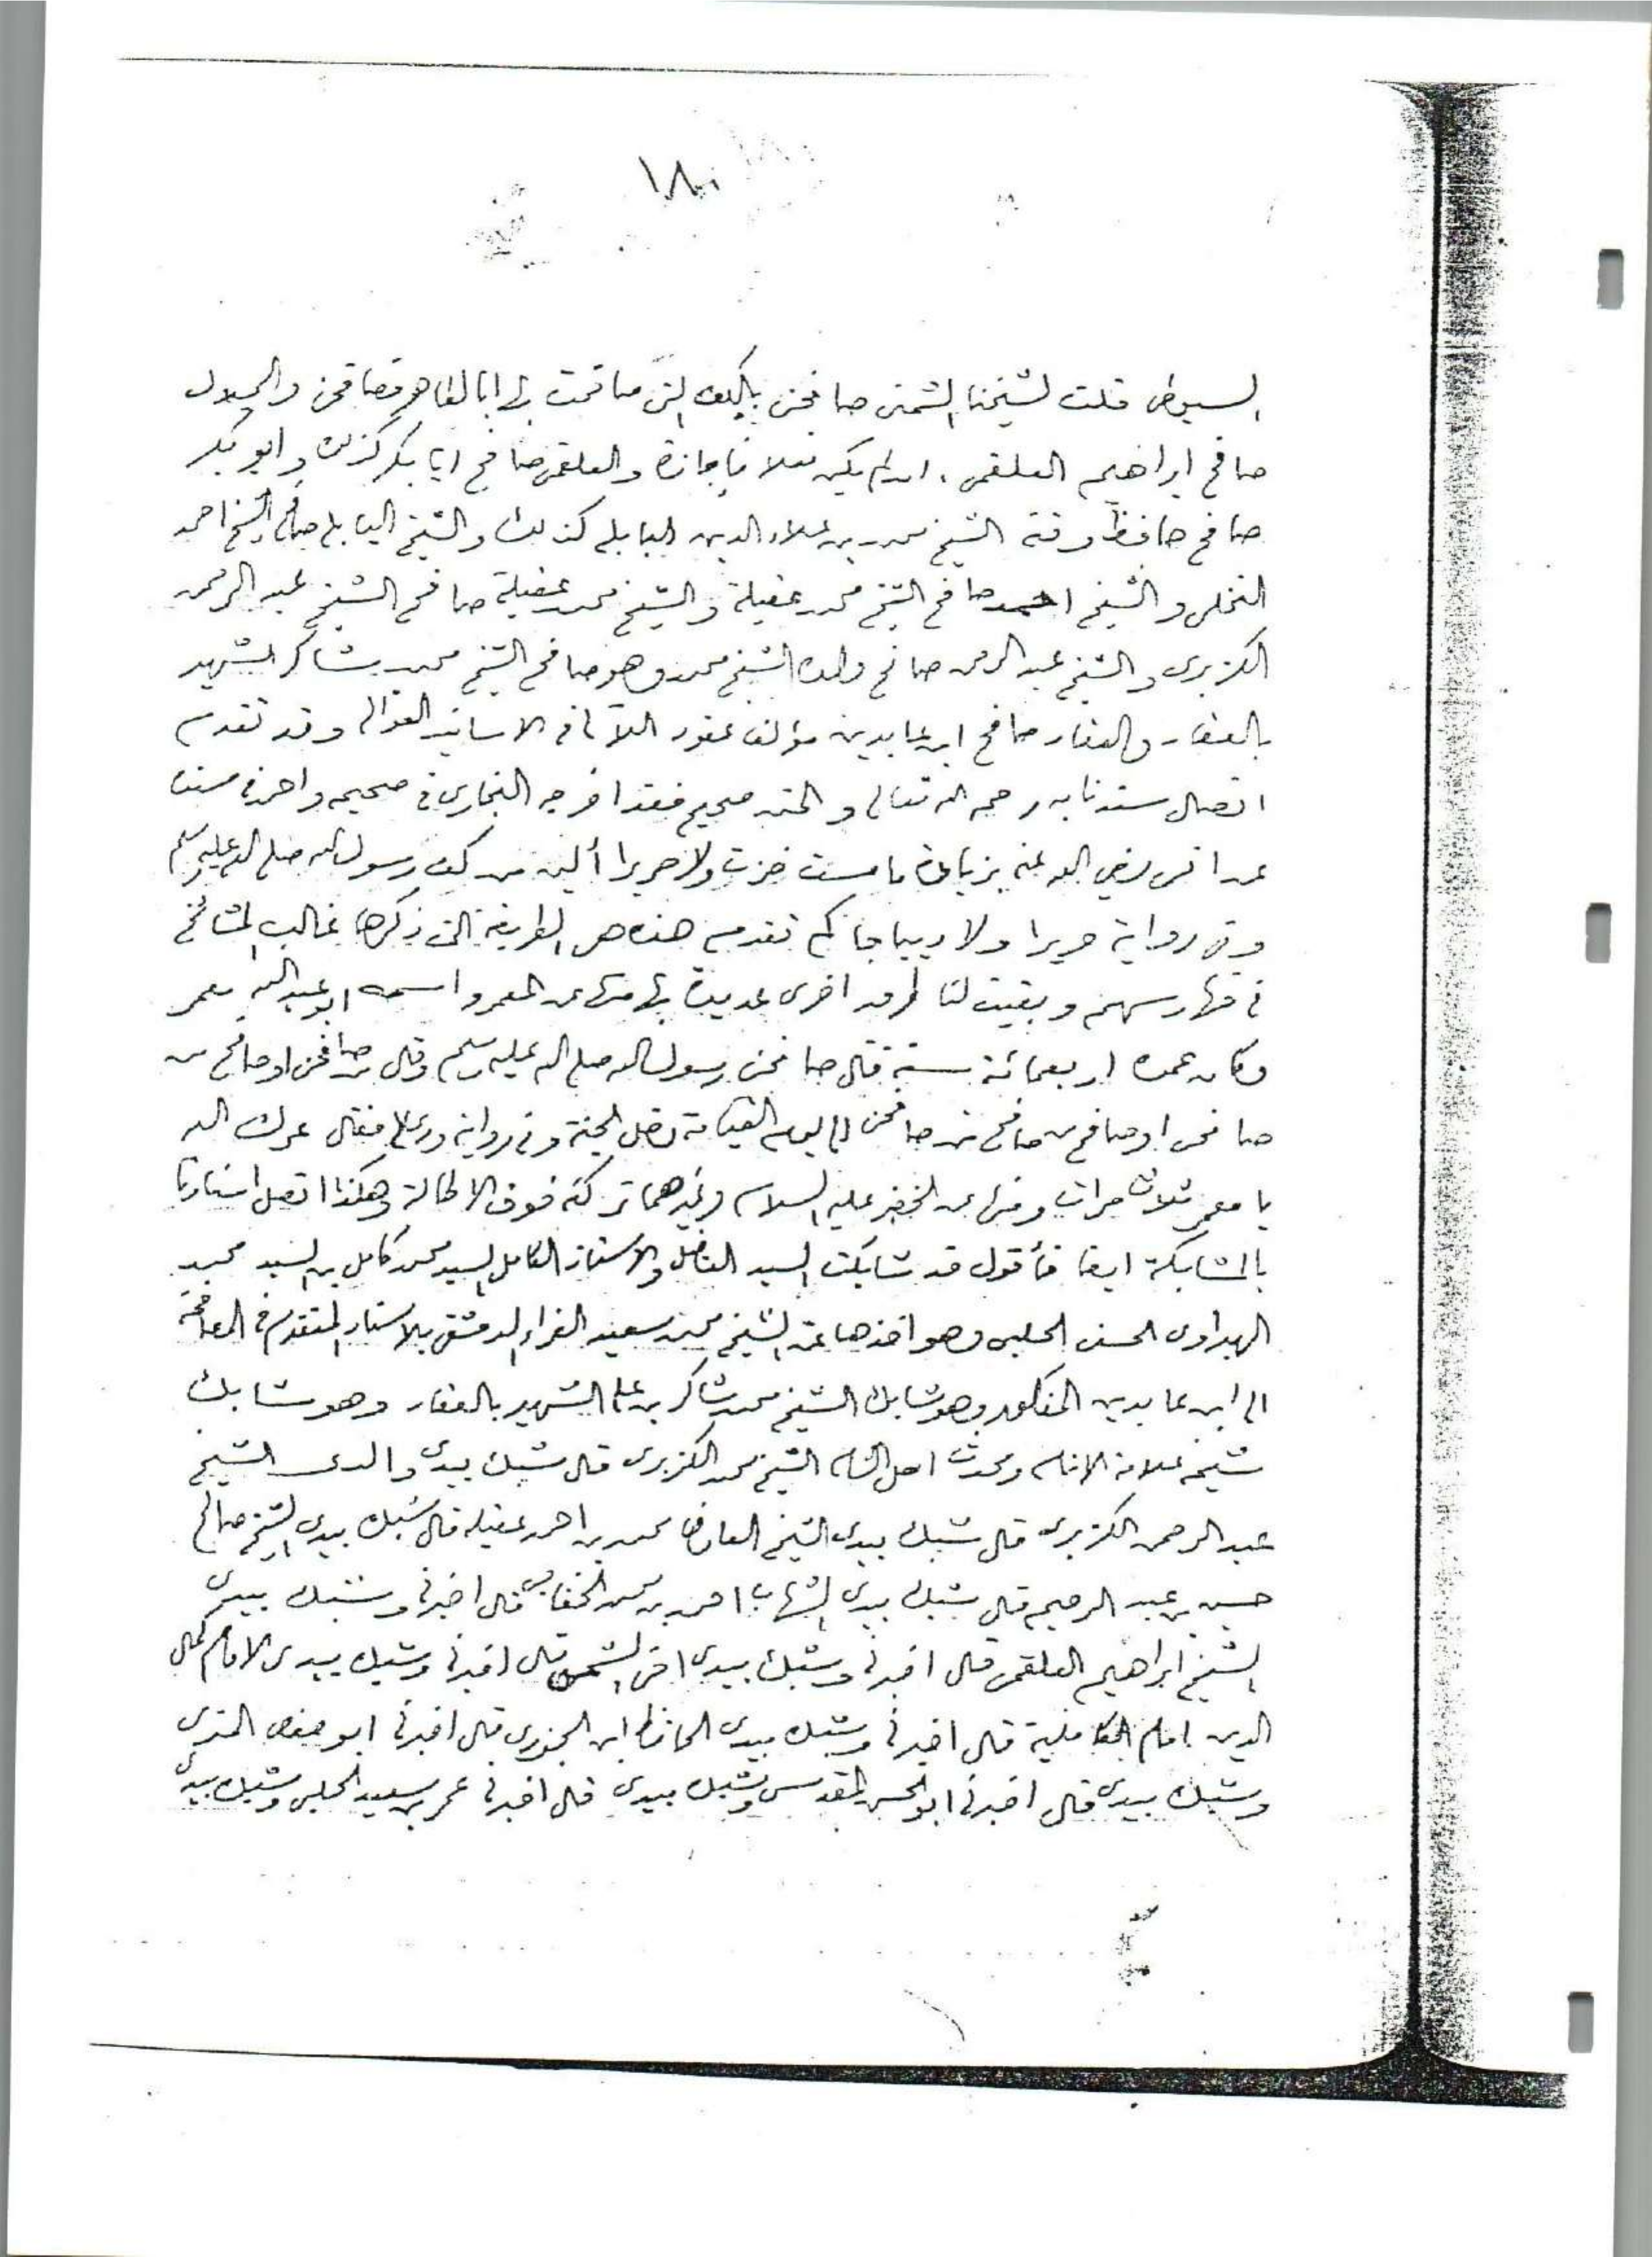 ١٨٠
السيوطي قلت لشيخنا الشمني صافحني بالكف التي صافحت بها ابا الطاهر فصافحني والجلال
صافح ابراهيم العلقمي ان لم يكن فعلا فاجازة والعلقمي صافح ابا بكر كذلك وابو بكر
صافح حافظ وقته الشيخ محمد بن علاء الدين البابلي كذلك والشيخ البابلي صافح الشيخ احمد
النخلي والشيخ احمد صافح الشيخ محمد عقيلة والشيخ محمد عقيلة صافح الشيخ عبد الرحمن
الكزبري والشيخ عبد الرحمن صافح ولده الشيخ محمد وهو صافح الشيخ محمد شاكر الشهير
بالعقاد والعقاد صافح ابن عابدين مؤلف عقود اللآلي في الاسانيد العوالي وقد تقدم
اتصال سندنا به رحمه الله تعالى والمتن صحيح فقد اخرجه البخاري في صحيحه واحمد في مسنده
عن انس رضي الله عنه بزيادة ما مست خزت ولا حريرا ألين من كف رسول الله صلى الله عليه وسلم
وفي رواية حريرا ولا ديباجا كما تقدم هذه هي الطريقة التي ذكرها غالب المشائخ
في فهارسهم وبقيت لنا طرق اخرى عديدة بها منها عن المعمر واسمه ابو عبد الله معمر
وكان عمره اربعمائة سنة قال صافحني رسول الله صلى الله عليه وسلم وقال من صافحني او صافح من
صافحني او صافح من صافح من صافحني الى يوم القيامة دخل الجنة وفي رواية ودعا لي فقال عمرك الله
يا معمر ثلاث مرات ومنها عن الخضر عليه السلام وغيرهما تركته خوف الاطالة وهكذا اتصل اسنادنا
بالمشابكة ايضا فأقول قد شابكت السيد الفاضل والاستاذ الكامل السيد محمد كامل بن السيد محمد
الهبراوي الحسني الحلبي وهو اخذها عن الشيخ محمد سعيد الفراء الدمشقي بالاسناد المتقدم في المصافحة
الى ابن عابدين المذكور وهو شابك الشيخ محمد شاكر بن علي الشهير بالعقاد وهو شابك
شيخه علامة الانام ومحدث اهل الشام الشيخ محمد الكزبري قال شبك بيدي والدي الشيخ
عبد الرحمن الكزبري قال شبك بيدي الشيخ العارف محمد بن احمد عقيلة قال شبك بيدي الشيخ صالح
حسين بن عبد الرحيم قال شبك بيدي الشهاب احمد بن محمد الخفاجي قال اخبرني وشبك بيدي
الشيخ ابراهيم العلقمي قال اخبرني وشبك بيدي اخي الشمس قال اخبرني وشبك بيدي الامام كمال
الدين امام الكاملية قال اخبرني وشبك بيدي الحافظ ابن الجزري قال اخبرني ابو حفص المزي
وشبك بيدي قال اخبرني ابو الحسن المقدسي وشبك بيدي قال اخبرني عمر بن سعيد الحلبي وشبك بيدي